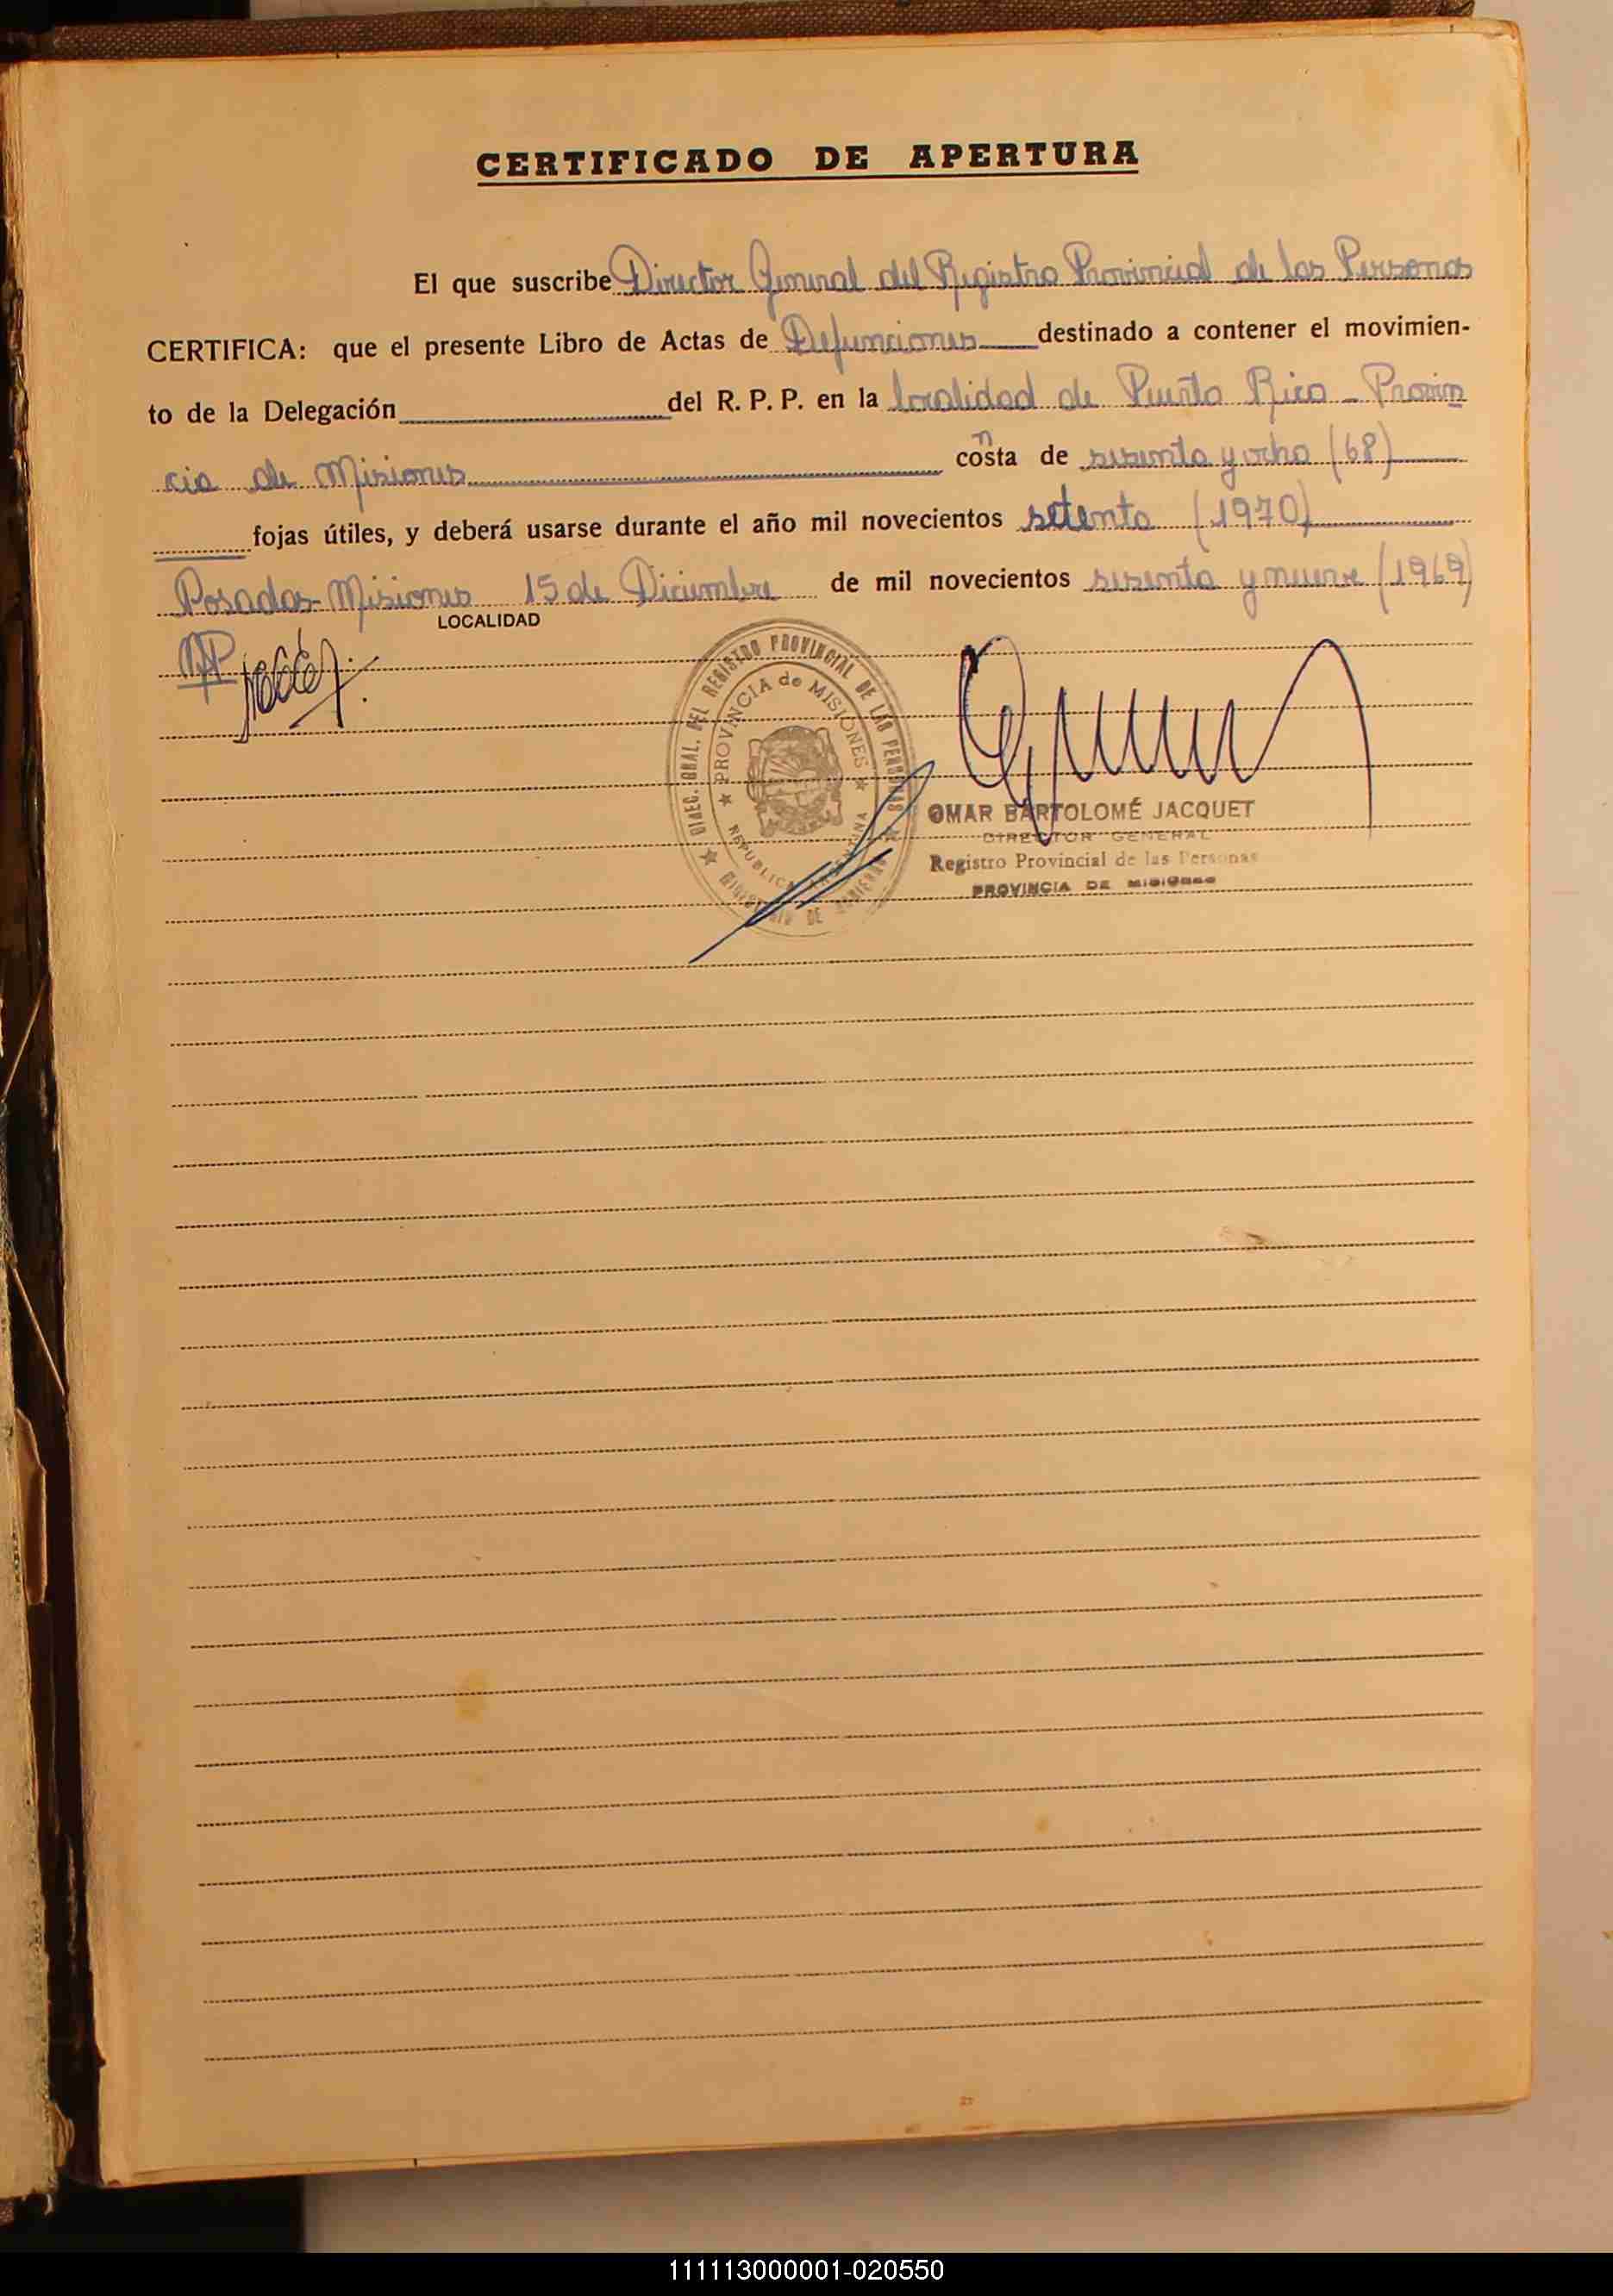 CERTIFICADO DE APERTURA
El que suscribe Director General del Registro Provincial de las Personas
CERTIFICA: que el presente Libro de Actas de Defunciones destinado a contener el movimien-
to de la Delegación del R. P. P. en la localidad de Puerto Rico - Provin
cia de Misiones consta de sesenta y ocho (68)
fojas útiles, y deberá usarse durante el año mil novecientos setenta (1970)
Posadas-Misiones 15 de Diciembre de mil novecientos sesenta y nueve (1969)
LOCALIDAD
DIREC. GRAL. DEL REGISTRO PROVINCIAL DE LAS PERSONAS
PROVINCIA de MISIONES
REPUBLICA ARGENTINA
MINISTERIO DE GOBIERNO
OMAR BARTOLOMÉ JACQUET
DIRECTOR GENERAL
Registro Provincial de las Personas
PROVINCIA DE MISIONES
111113000001-020550